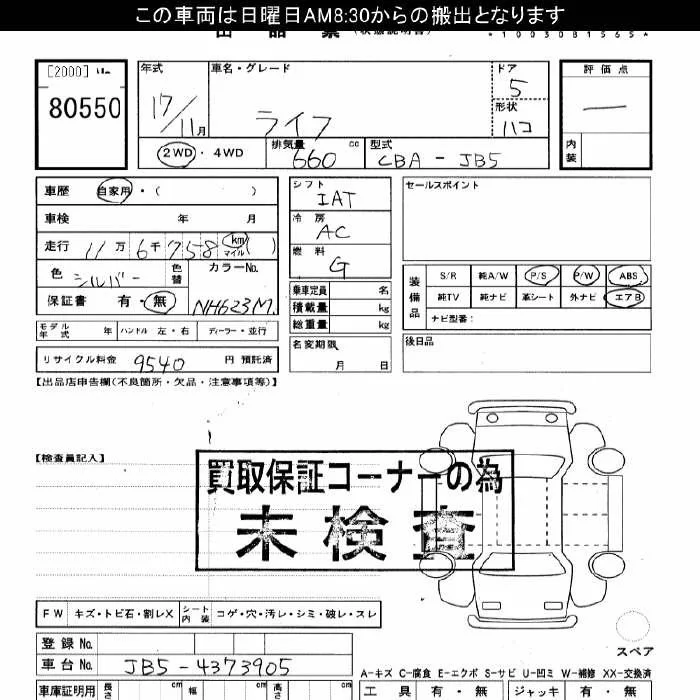 この車両は日曜日AM8:30からの搬出となります
[2000]
80550
年式
17/11月
車名・グレード
ライフ
ドア
5
形状
ハコ
評価点
—
内装
2WD・4WD
排気量
660 cc
型式
CBA-JB5
車歴 自家用・( )
車検 年 月
走行 11万6千758 km マイル ( )
色 シルバー
色替
カラーNo.
NH623M.
保証書 有・無
モデル年式 年 ハンドル 左・右 ディーラー・並行
リサイクル料金 9540 円 預託済
シフト
IAT
冷房
AC
燃料
G
乗車定員 名
積載量 kg
総重量 kg
名変期限
月 日
セールスポイント
装備品
S/R 純A/W P/S P/W ABS
純TV 純ナビ 革シート 外ナビ エアB
ナビ型番:
後日品
【出品店申告欄(不良箇所・欠品・注意事項等)】
【検査員記入】
買取保証コーナーの為
未検査
FW キズ・トビ石・割レX シート内装 コゲ・穴・汚レ・シミ・破レ・スレ
スペア
登録No.
車台No. JB5-4373905
A-キズ C-腐食 E-エクボ S-サビ U-凹ミ W-補修 XX-交換済
車庫証明用 長さ cm 幅 cm 高さ cm
工具 有・無 ジャッキ 有・無